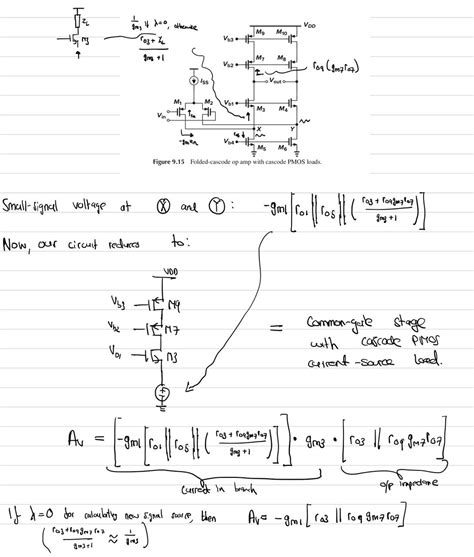 Z_L
M3
1/gm3 if λ=0, otherwise
r03 + Z_L / gm3 + 1
V_DD
M9 M10
V_b3
V_b2 M7 M8
r09(gm7r07)
V_out
I_SS
M1 M2
V_in
V_b1 M3 M4
X Y
-gm1Vin
V_b4 M5 M6
Figure 9.15 Folded-cascode op amp with cascode PMOS loads.
Small-signal voltage at X and Y : -gm1[r01 || r05 || (r03 + r09gm7r07 / gm3 + 1)]
Now, our circuit reduces to:
VDD
Vb3 M9
Vb2 M7
Vb1 M3
= Common-gate stage
with cascode PMOS
current-source load.
Av = [-gm1[r01 || r05 || (r03 + r09gm7r07 / gm3 + 1)]] · gm3 · [r03 || r09 gm7r07]
current in branch
o/p impedance
If λ=0 for calculating new signal source, then Av = -gm1[r03 || r09 gm7 r07]
(r03 + r09 gm7 r07 / gm3 + 1 ≈ 1/gm3)